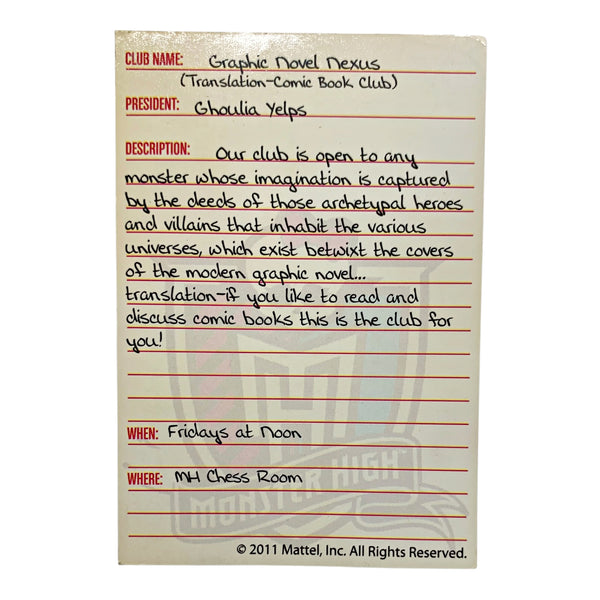 CLUB NAME: Graphic Novel Nexus
(Translation-Comic Book Club)
PRESIDENT: Ghoulia Yelps
DESCRIPTION: Our club is open to any
monster whose imagination is captured
by the deeds of those archetypal heroes
and villains that inhabit the various
universes, which exist betwixt the covers
of the modern graphic novel...
translation-if you like to read and
discuss comic books this is the club for
you!
WHEN: Fridays at Noon
WHERE: MH Chess Room
MONSTER HIGH™
© 2011 Mattel, Inc. All Rights Reserved.